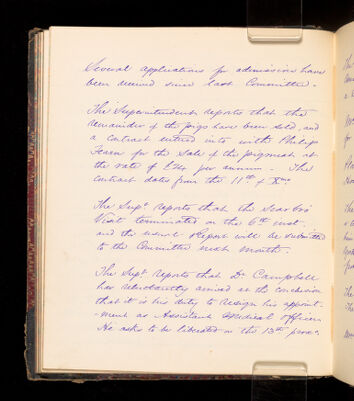 Several applications for admission have
been received since last Committee.
The Superintendent reports that the
remainder of the pigs have been sold, and
a contract entered into with Philip
for the sale of the pigmeat at
the rate of per annum. The
contract dates from the 11th of Xmo.
The Supt reports that the
Visit terminated on the 6th inst.
and the usual Report will be submitted
to the Committee next month.
The Supt reports that Dr Campbell
has reluctantly arrived at the conclusion
that it is his duty to resign his appoint-
-ment as Assistant Medical Officer.
He asks to be liberated on the 13th prox.